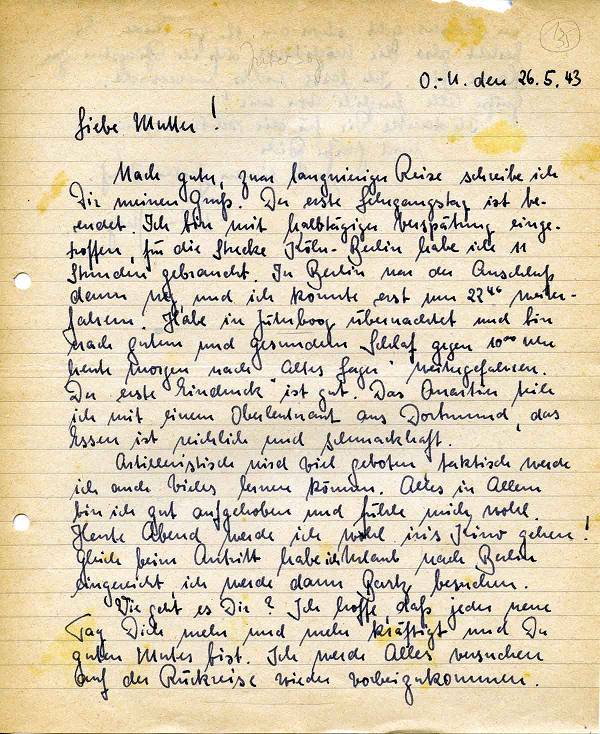 35
Jüterbog
O.-U. den 26.5.43
Liebe Mutter!
Nach guter, zwar langwieriger Reise schreibe ich
Dir meinen Gruß. Der erste Lehrgangstag ist be-
endet. Ich bin mit halbtägiger Verspätung einge-
troffen, für die Strecke Köln-Berlin habe ich 11
Stunden gebraucht. In Berlin war der Anschluß
dann weg und ich konnte erst um 22⁴⁶ weiter-
fahren. Habe in Jüterbog übernachtet und bin
nach gutem und gesundem Schlaf gegen 10⁰⁰ Uhr
heute morgen nach "Altes Lager" weitergefahren.
Der erste "Eindruck" ist gut. Das Quartier teile
ich mit einem Oberleutnant aus Dortmund, das
Essen ist reichlich und schmackhaft.
Artilleristisch wird viel geboten, taktisch werde
ich auch vieles lernen können. Alles in Allem
bin ich gut aufgehoben und fühle mich wohl.
Heute Abend werde ich wohl in's Kino gehen!
Gleich beim Antritt habe ich Urlaub nach Berlin
eingereicht, ich werde dann Bartz besuchen.
Wie geht es Dir? Ich hoffe, daß jeder neue
Tag Dich mehr und mehr kräftigt und Du
guten Mutes bist. Ich werde Alles versuchen
auf der Rückreise wieder vorbeizukommen.